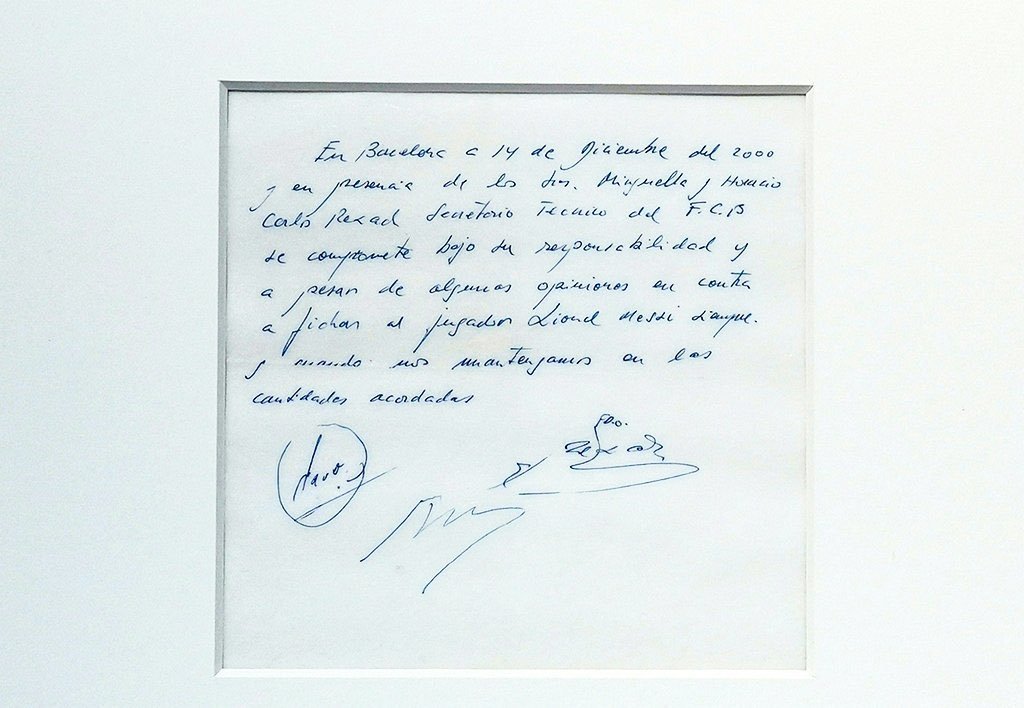 En Barcelona a 14 de Diciembre del 2000
y en presencia de los Sres. Minguella y Horacio
Carlos Rexach Secretario Tecnico del F.C.B
se compromete bajo su responsabilidad y
a pesar de algunas opiniones en contra
a fichar al jugador Lionel Messi siempre.
y cuando nos mantengamos en las
cantidades acordadas